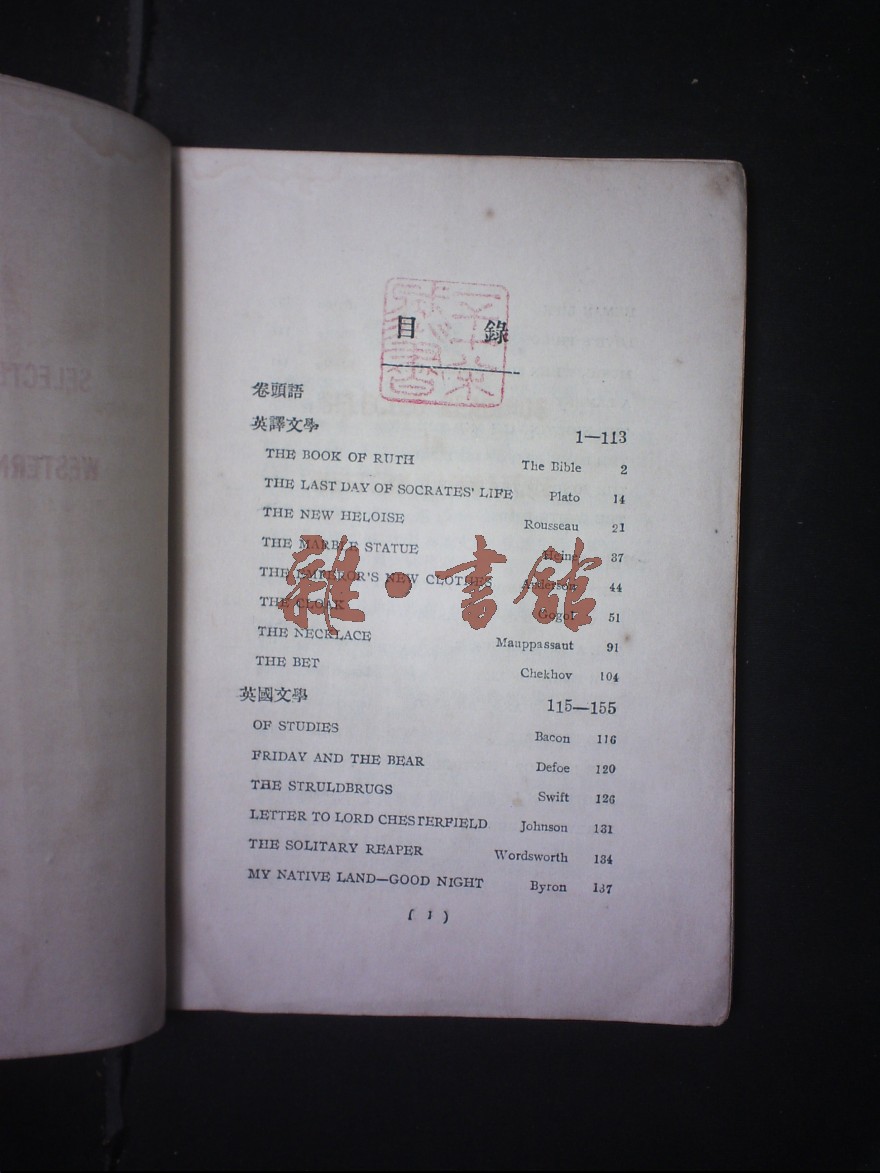 目 錄
卷頭語
英譯文學 1—113
THE BOOK OF RUTH The Bible 2
THE LAST DAY OF SOCRATES' LIFE Plato 14
THE NEW HELOISE Rousseau 21
THE MARBLE STATUE Heine 37
THE EMPEROR'S NEW CLOTHES Anderson 44
THE CLOAK Gogol 51
THE NECKLACE Mauppassaut 91
THE BET Chekhov 104
英國文學 115—155
OF STUDIES Bacon 116
FRIDAY AND THE BEAR Defoe 120
THE STRULDBRUGS Swift 126
LETTER TO LORD CHESTERFIELD Johnson 131
THE SOLITARY REAPER Wordsworth 134
MY NATIVE LAND—GOOD NIGHT Byron 137
( 1 )
雜·書館